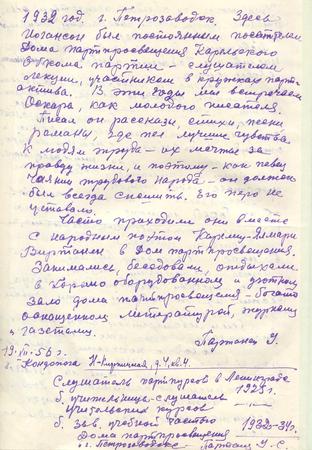 1932 год. г. Петрозаводск. Здесь
Иогансон был постоянным посетителем
Дома партпросвещения Карельского
Обкома партии – слушателем
лекции, участником в кружках парт-
актива. В эти годы мы встречаем
Оскара, как молодого писателя.
Писал он рассказы, стихи, песни
романы, где пел лучшие чувства
к людям труда – их мечты за
правду жизни, и поэтому – как певец
чаяний трудового народа – он должен
был всегда спешить. Его перо не
уставало.
Часто приходили они вместе
с народным поэтом Карлу-Ялмари
Виртанен в Дом партпросвещения.
Занимались, беседовали, отдыхали
в хорошо оборудованном и уютном
зале дома партпросвещения – богато
оснащенном литературой, журналами
и газетами.
У.
19. 56 г.
Кондопога д. 4, кв. 4.
Слушатель парткурсов в Ленинграде
б. учительницы-слушатель 1929 г.
учительских курсов
б. зав. учебной частью 1932-34 г.
Дома партпросвещения
г. Петрозаводск У. С.